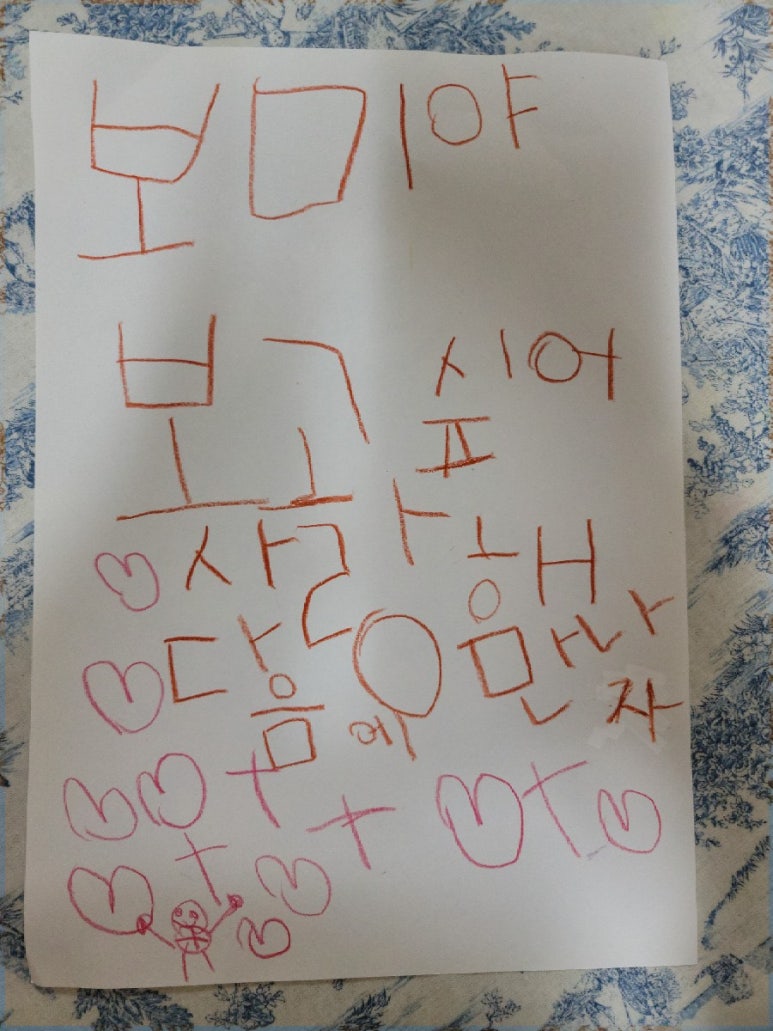 보미야
보고 싶어
사랑해
다음에 만나
자